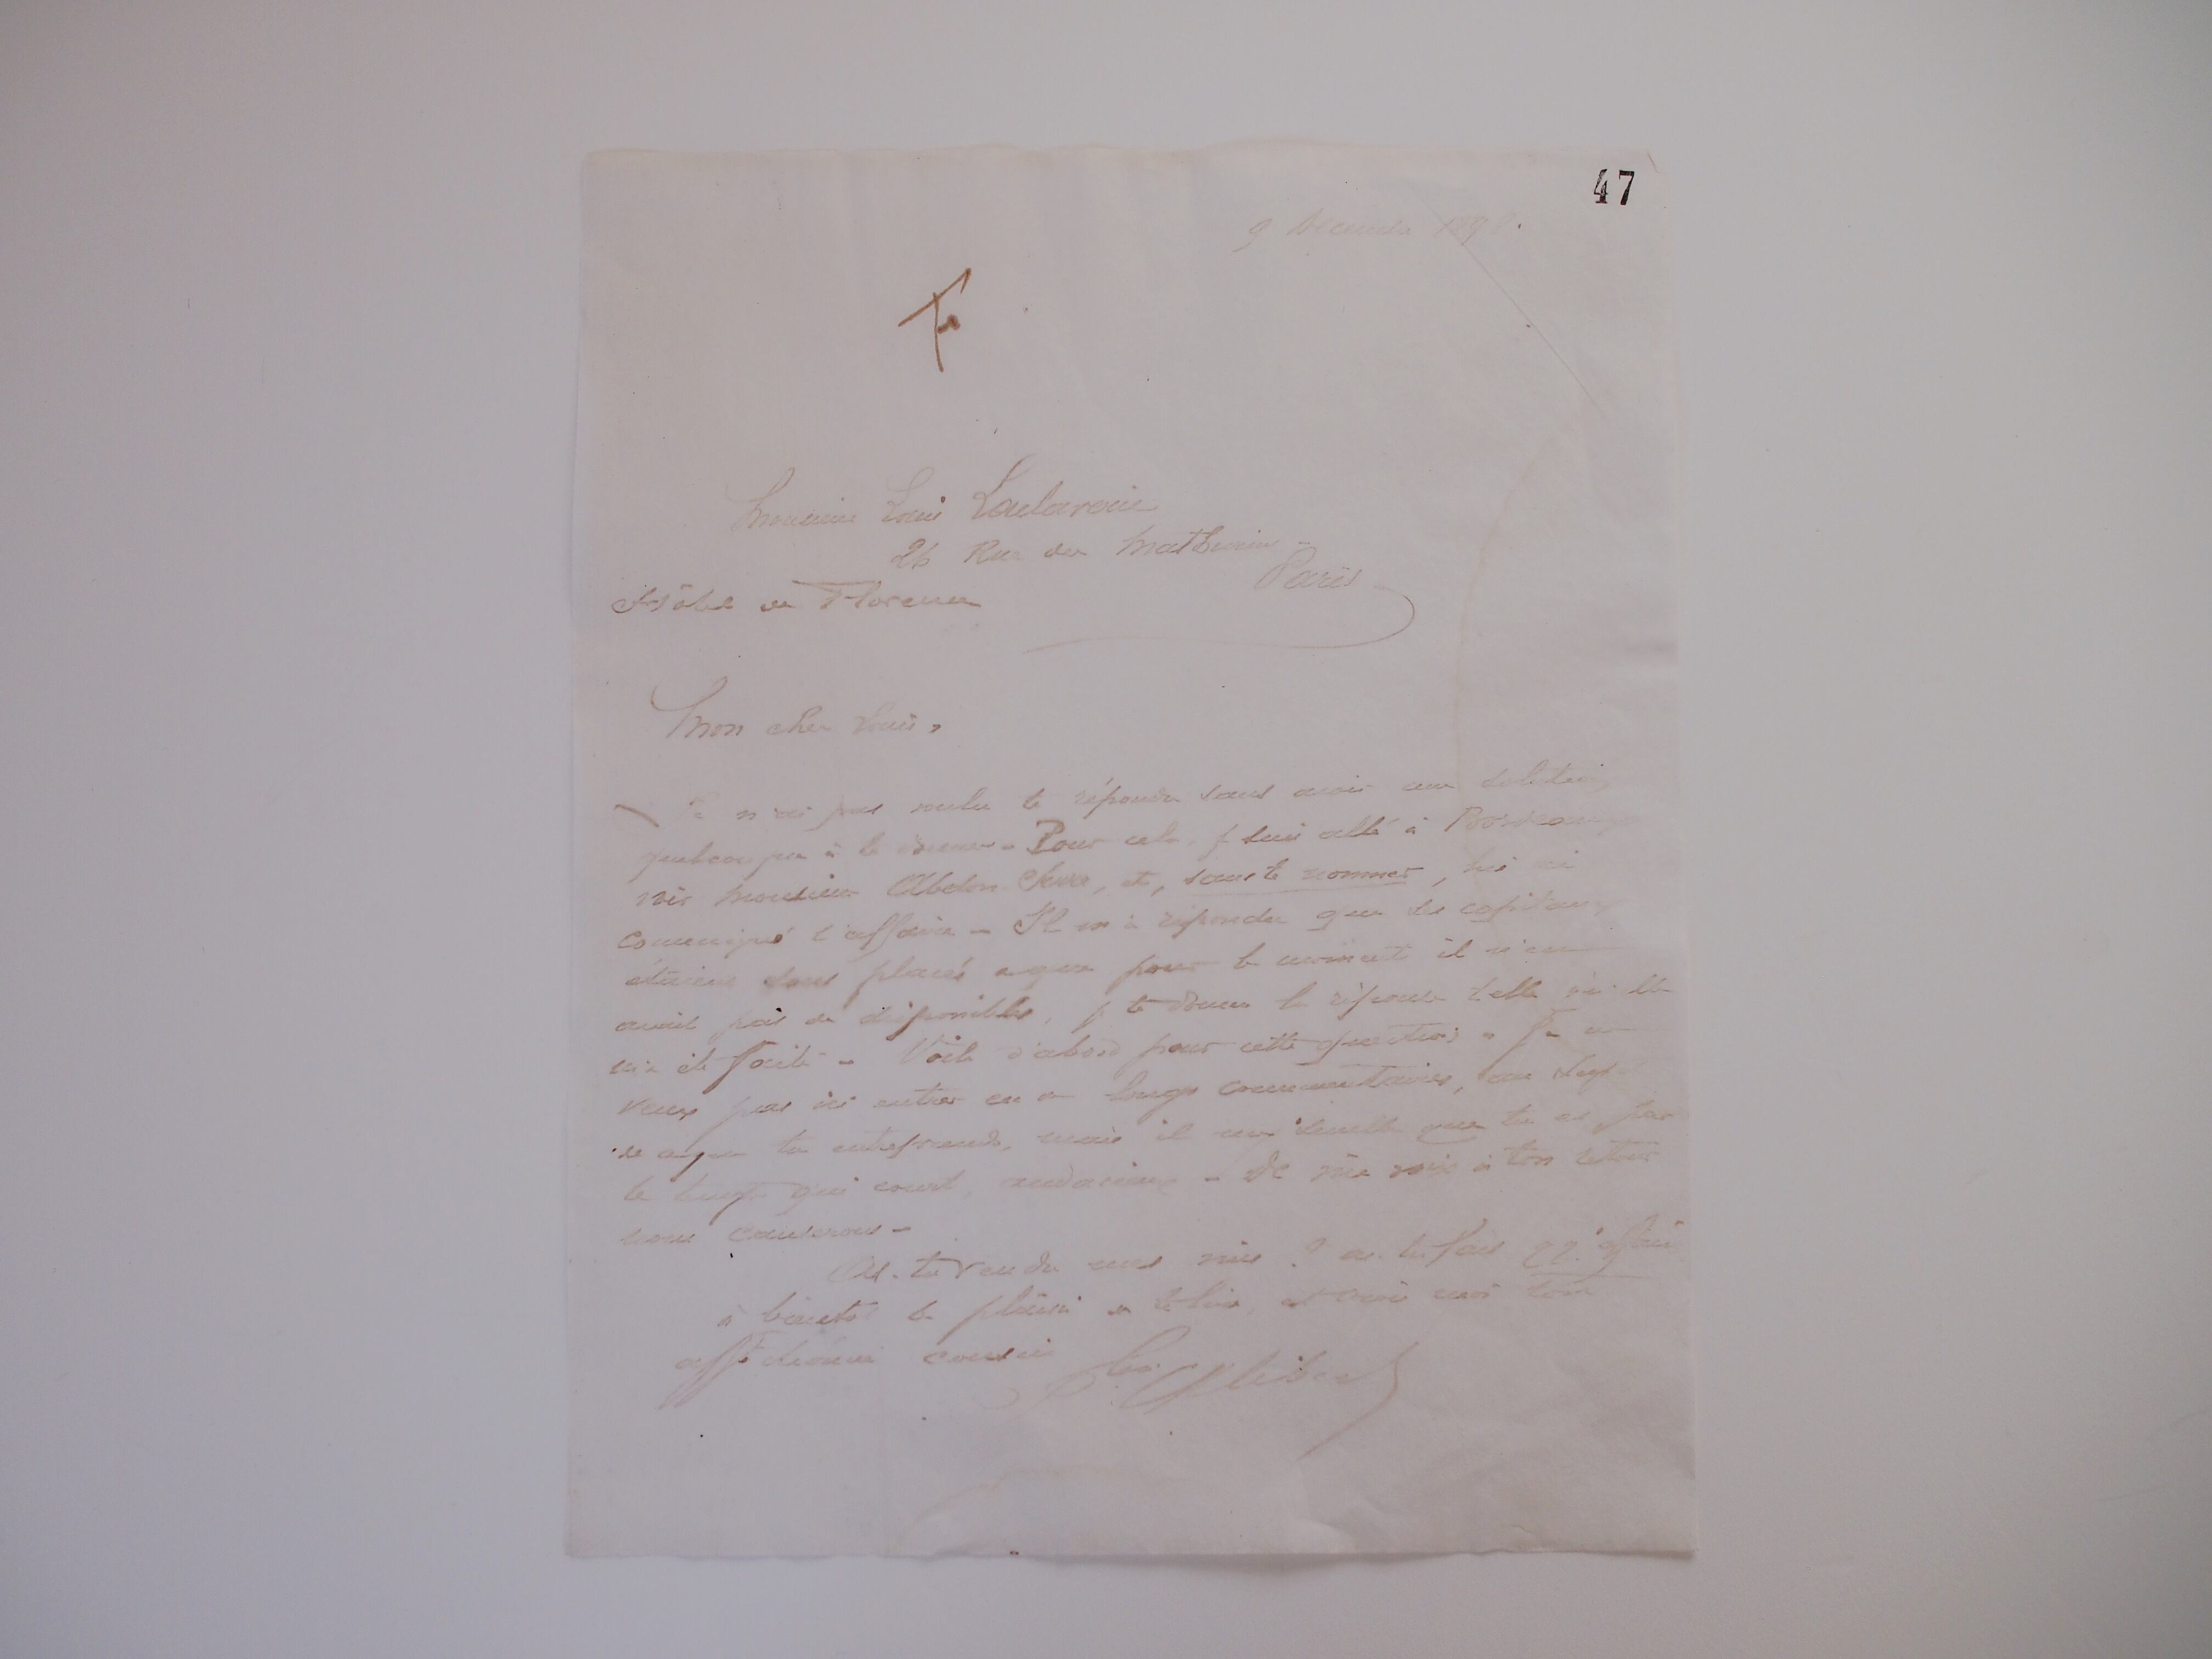 47
9 Décembre 189
Monsieur Louis
26 Rue des Mathurins
Paris
Hôtel de Florence
Mon cher Louis,
Je n'ai pas voulu te répondre sans avoir une solution
quelconque à te donner - Pour cela, je suis allé à Bordeaux
voir Monsieur Abdon, et, sans te nommer, lui ai
communiqué l'affaire - Il m'a répondu que ses capitaux
étaient tous placés et que pour le moment il n'en
avait pas de disponibles, je te donne la réponse telle qu'elle
m'a été faite - Voilà d'abord pour cette question - Je ne
veux pas ici entrer en de longs commentaires, au sujet
de ce que tu entreprends, mais il me semble que tu es, par
le temps qui court, audacieux - De vive voix à ton retour
nous causerons -
As-tu vendu mes vins ? as-tu fait qq. affaire
à bientôt le plaisir de te lire, et crois moi ton
affectionné cousin